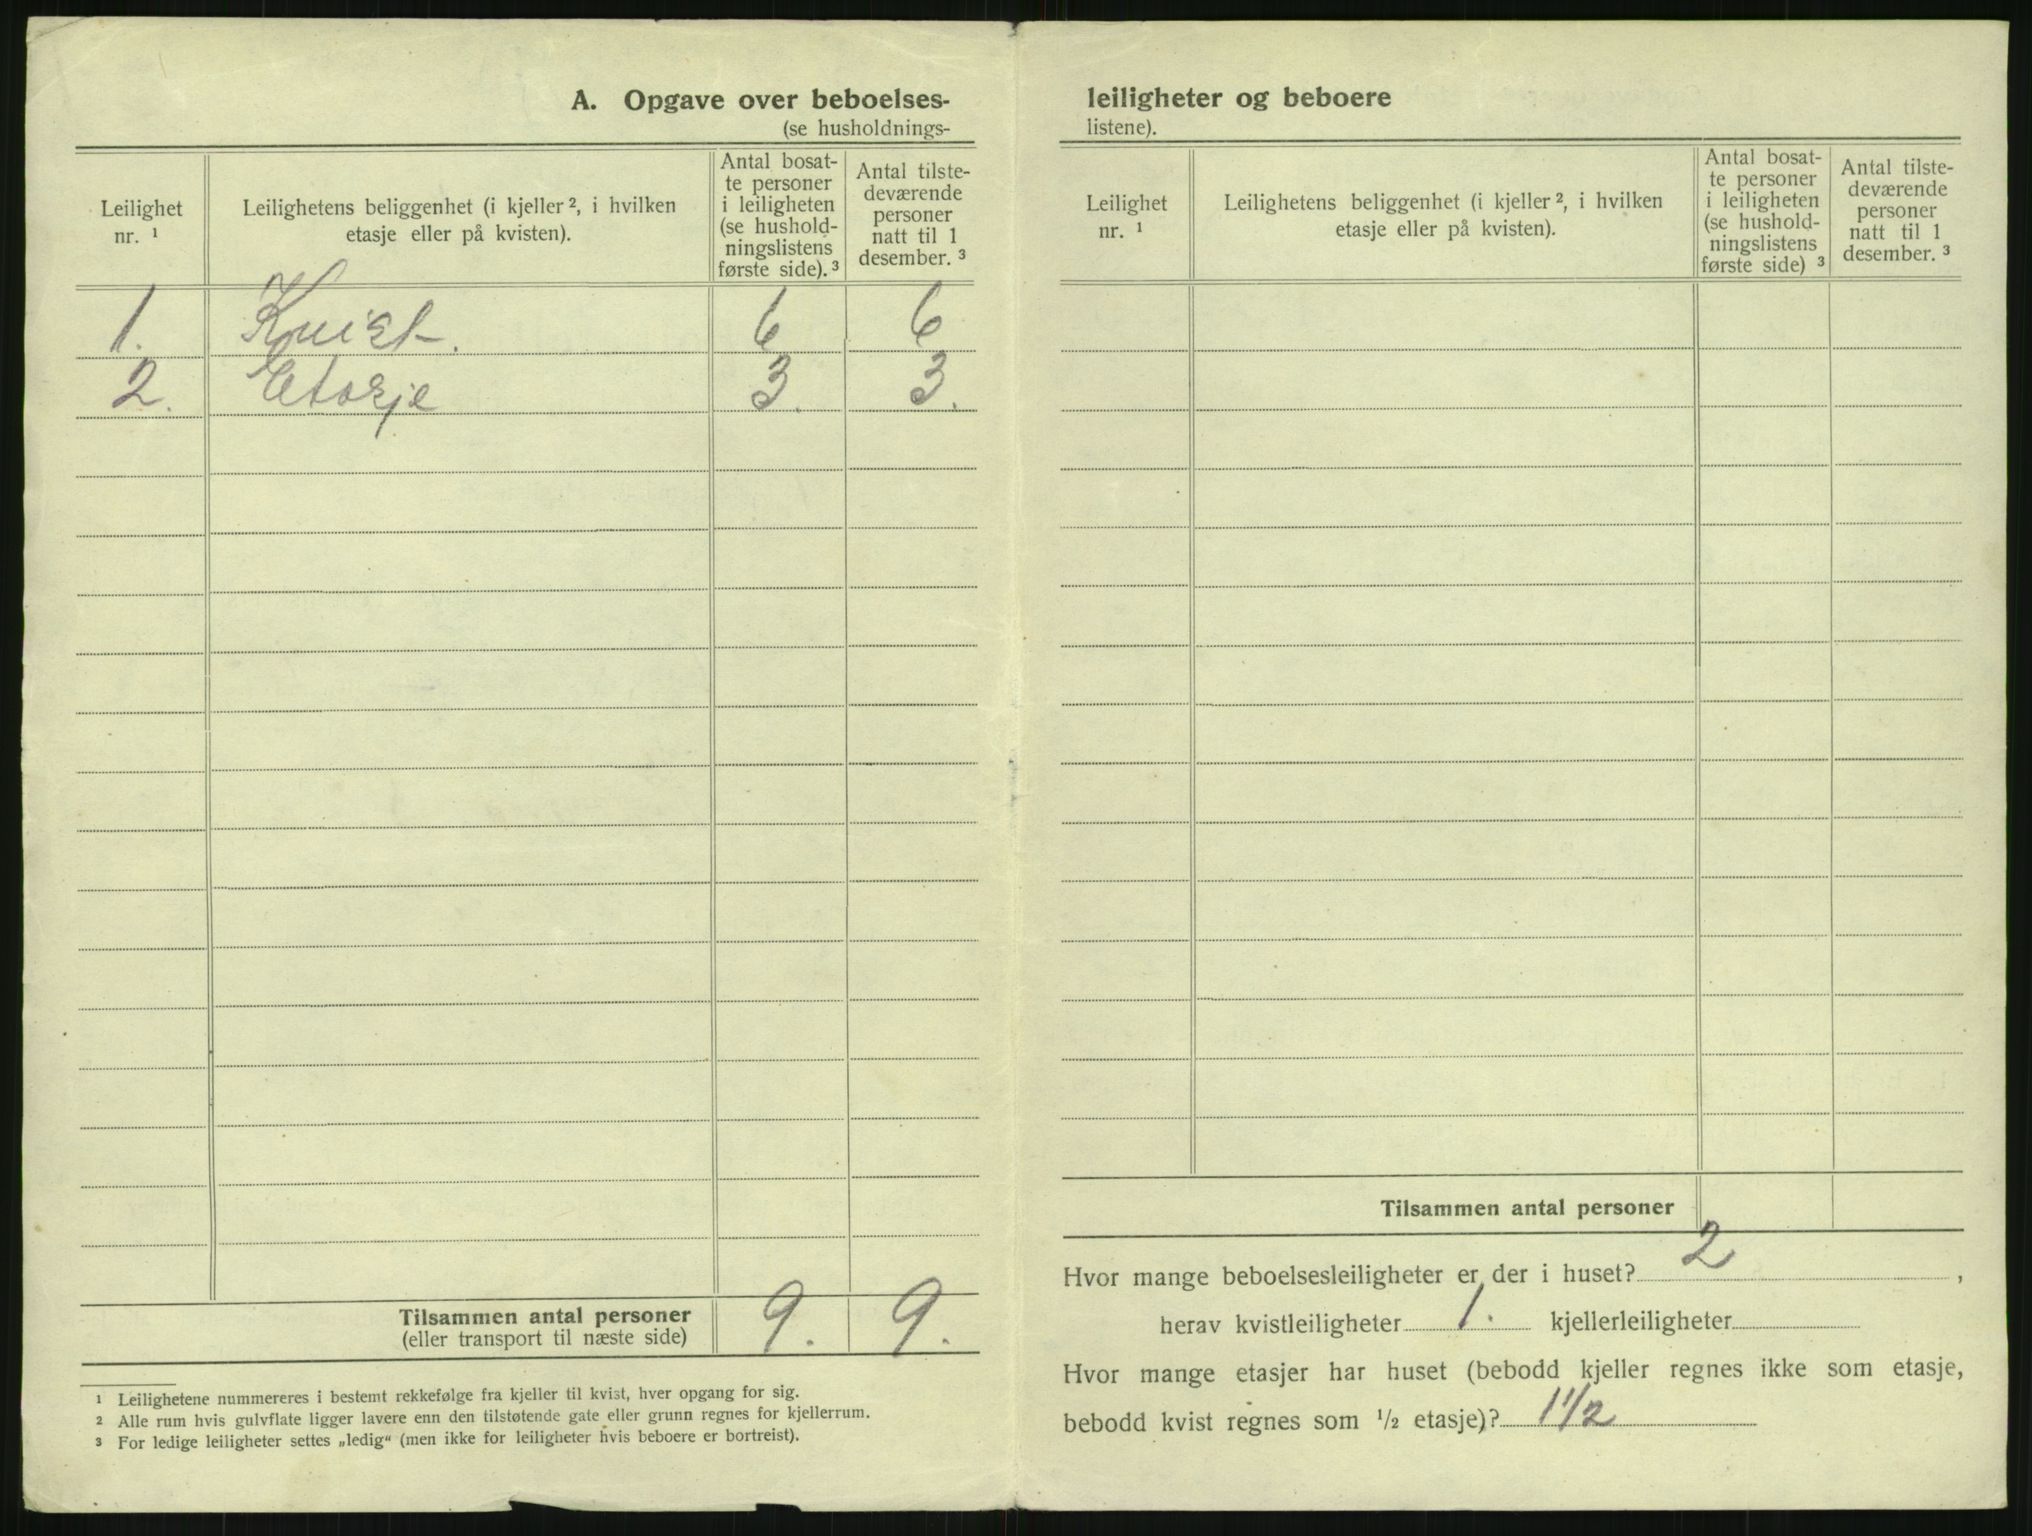 A. Opgave over beboelses-
(se husholdnings-
Leilighet nr. ¹
Leilighetens beliggenhet (i kjeller ², i hvilken
etasje eller på kvisten).
Antal bosat-
te personer
i leiligheten
(se hushold-
ningslistens
første side). ³
Antal tilste-
deværende
personer
natt til 1
desember. ³
1. Kvist. 6 6
2. Etasje 3. 3.
Tilsammen antal personer 9. 9.
(eller transport til næste side)
¹ Leilighetene nummereres i bestemt rekkefølge fra kjeller til kvist, hver opgang for sig.
² Alle rum hvis gulvflate ligger lavere enn den tilstøtende gate eller grunn regnes for kjellerrum.
³ For ledige leiligheter settes „ledig“ (men ikke for leiligheter hvis beboere er bortreist).
leiligheter og beboere
listene).
Leilighet nr. ¹
Leilighetens beliggenhet (i kjeller ², i hvilken
etasje eller på kvisten).
Antal bosat-
te personer
i leiligheten
(se hushold-
ningslistens
første side) ³
Antal tilste-
deværende
personer
natt til 1
desember. ³
Tilsammen antal personer
Hvor mange beboelsesleiligheter er der i huset? 2 ,
herav kvistleiligheter 1. kjellerleiligheter
Hvor mange etasjer har huset (bebodd kjeller regnes ikke som etasje,
bebodd kvist regnes som ½ etasje)? 1½